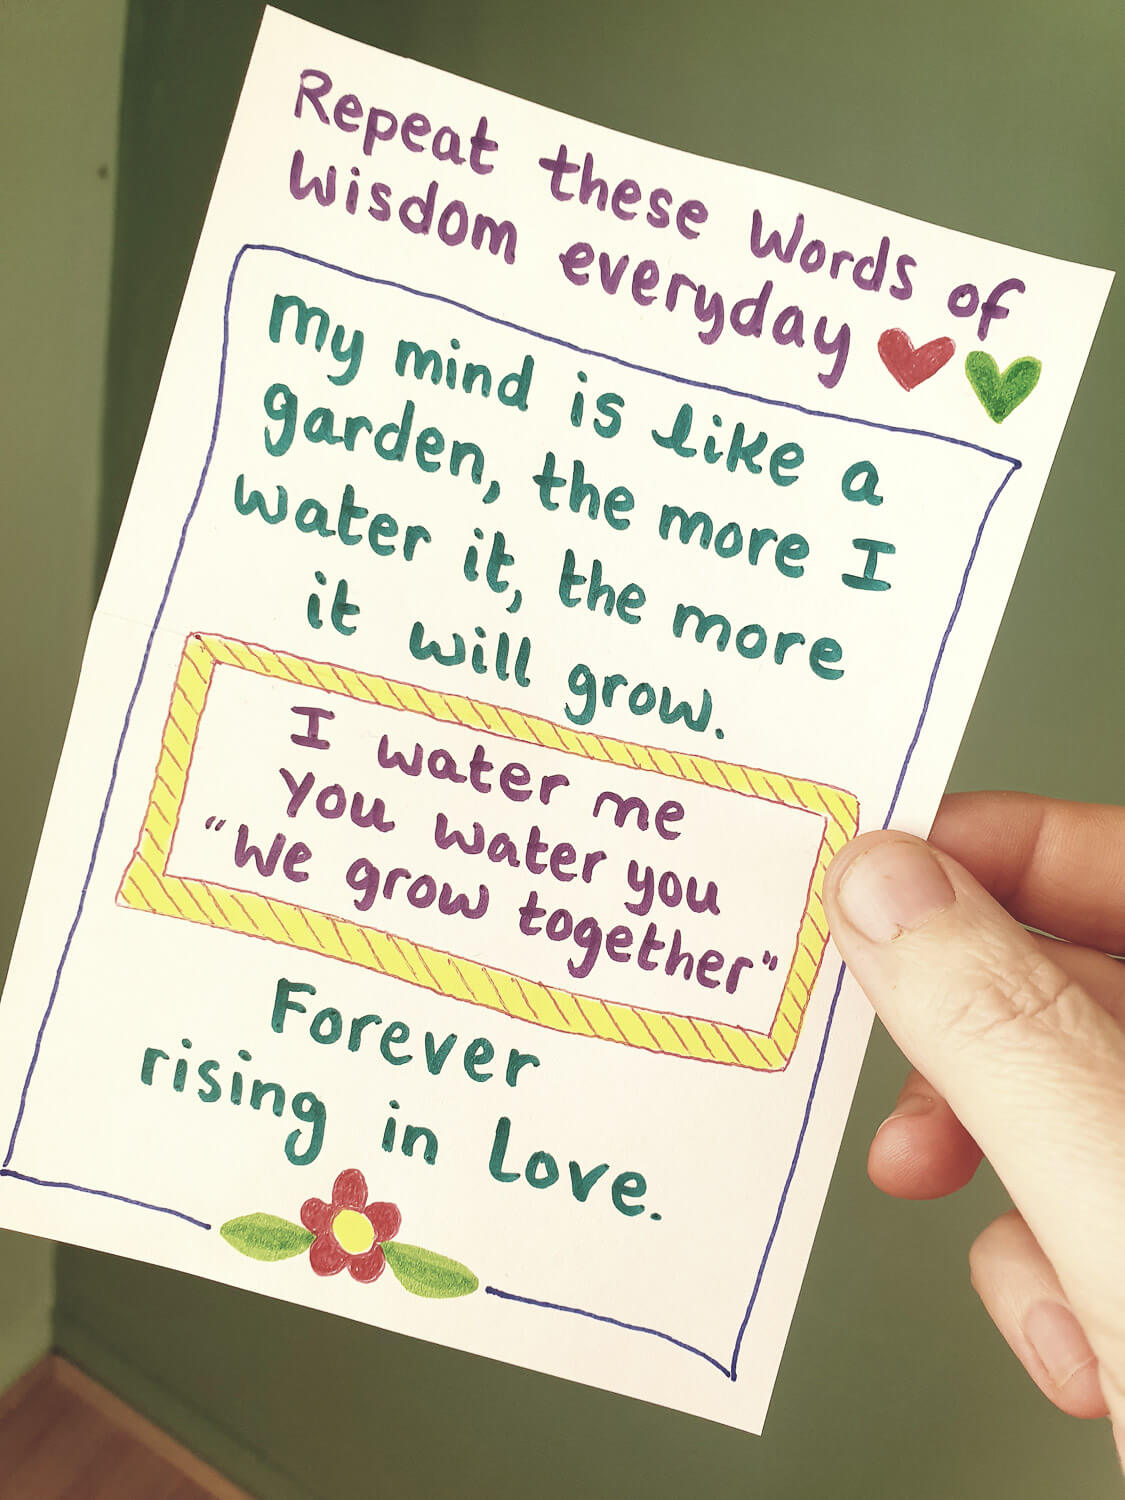 Repeat these Words of
Wisdom everyday
My mind is like a
garden, the more I
water it, the more
it will grow.
I water me
You water you
"We grow together"
Forever
rising in Love.